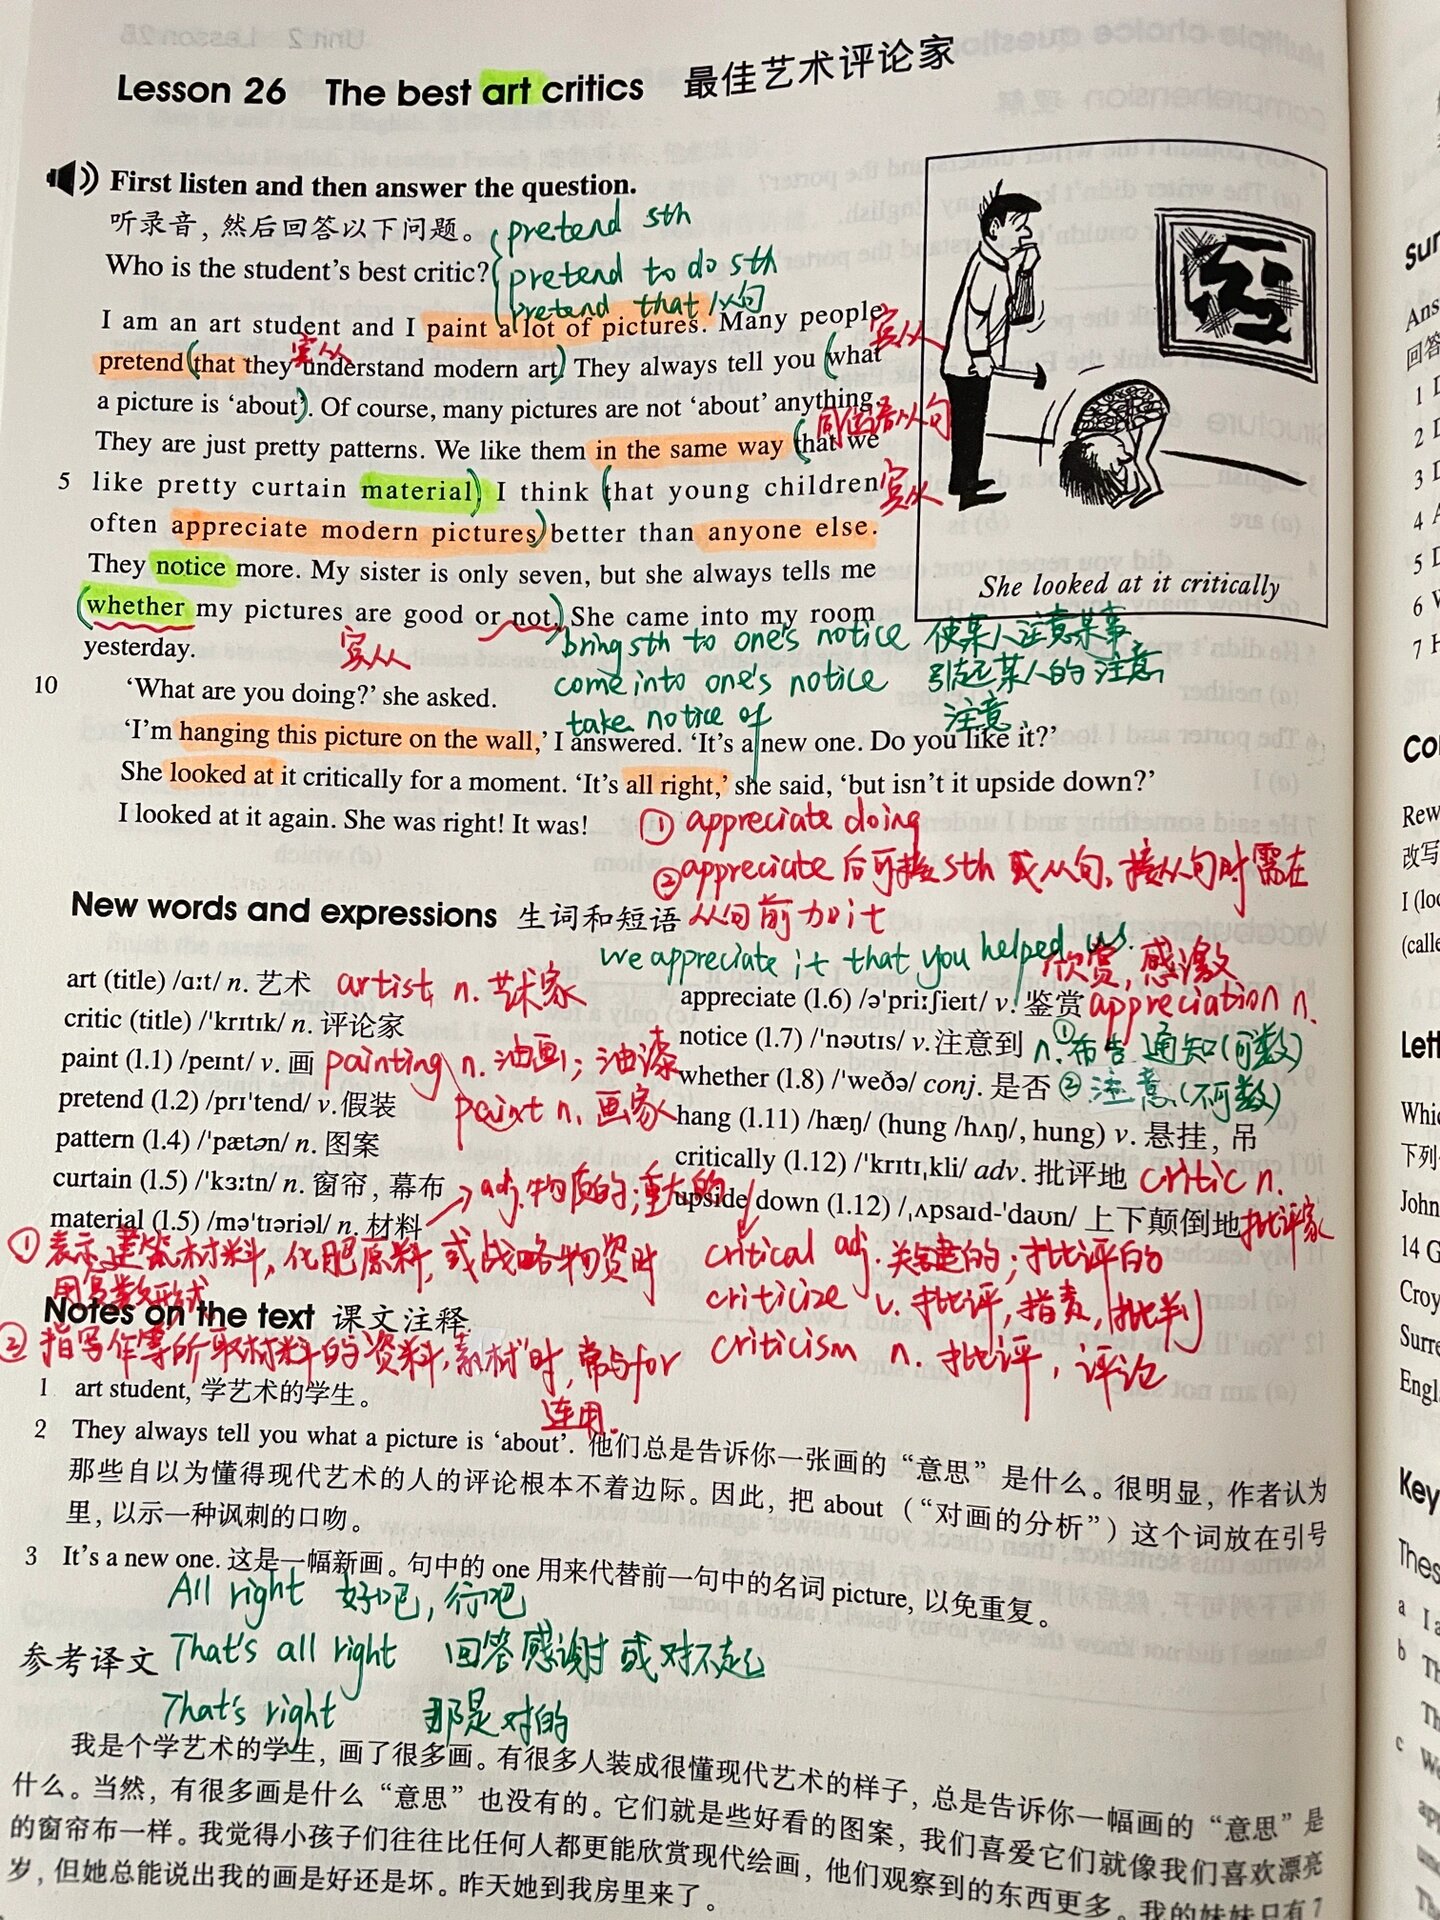 Lesson 26 The best art critics 最佳艺术评论家
First listen and then answer the question.
听录音，然后回答以下问题。
pretend sth
Who is the student's best critic?
pretend to do sth
pretend that 从句
I am an art student and I paint a lot of pictures. Many people
宾从 宾从
pretend (that they understand modern art.) They always tell you (what
a picture is 'about'). Of course, many pictures are not 'about' anything.
同位语从句
They are just pretty patterns. We like them in the same way (that we
5 like pretty curtain material.) I think (that young children
宾从
often appreciate modern pictures) better than anyone else.
They notice more. My sister is only seven, but she always tells me
She looked at it critically
(whether my pictures are good or not.) She came into my room
宾从
yesterday.
bring sth to one's notice 使某人注意某事
come into one's notice 引起某人的注意
take notice of 注意
10 'What are you doing?' she asked.
'I'm hanging this picture on the wall,' I answered. 'It's a new one. Do you like it?'
She looked at it critically for a moment. 'It's all right,' she said, 'but isn't it upside down?'
I looked at it again. She was right! It was!
① appreciate doing
② appreciate 后可接 sth 或从句，接从句时需在
从句前加 it
we appreciate it that you helped us.
New words and expressions 生词和短语
art (title) /ɑːt/ n. 艺术 artist n. 艺术家
critic (title) /ˈkrɪtɪk/ n. 评论家
paint (l.1) /peɪnt/ v. 画 painting n. 油画；油漆
paint n. 画家
pretend (l.2) /prɪˈtend/ v. 假装
pattern (l.4) /ˈpætən/ n. 图案
curtain (l.5) /ˈkɜːtn/ n. 窗帘，幕布
material (l.5) /məˈtɪəriəl/ n. 材料 → adj. 物质的；重大的
① 表示建筑材料，化肥原料，或战略物资时
用复数形式
欣赏，感激
appreciate (l.6) /əˈpriːʃieɪt/ v. 鉴赏 appreciation n.
notice (l.7) /ˈnəʊtɪs/ v. 注意到 n. ① 布告 通知（可数）
whether (l.8) /ˈweðə/ conj. 是否 ② 注意（不可数）
hang (l.11) /hæŋ/ (hung /hʌŋ/, hung) v. 悬挂，吊
critically (l.12) /ˈkrɪtɪˌkli/ adv. 批评地 critic n.
批评家
upside down (l.12) /ˌʌpsaɪd-ˈdaʊn/ 上下颠倒地
critical adj. 关键的；批评的
criticize v. 批评，指责，批判
criticism n. 批评，评论
Notes on the text 课文注释
② 指写作等所取材料的资料，"素材"时，常与for
连用.
1 art student, 学艺术的学生。
2 They always tell you what a picture is 'about'. 他们总是告诉你一张画的“意思”是什么。很明显，作者认为
那些自以为懂得现代艺术的人的评论根本不着边际。因此，把 about （“对画的分析”）这个词放在引号
里，以示一种讽刺的口吻。
3 It's a new one. 这是一幅新画。句中的 one 用来代替前一句中的名词 picture, 以免重复。
All right 好吧，行吧
参考译文
That's all right 回答感谢时或对不起
That's right 那是对的
我是个学艺术的学生，画了很多画。有很多人装成很懂现代艺术的样子，总是告诉你一幅画的“意思”是
什么。当然，有很多画是什么“意思”也没有的。它们就是些好看的图案，我们喜爱它们就像我们喜欢漂亮
的窗帘布一样。我觉得小孩子们往往比任何人都更能欣赏现代绘画，他们观察到的东西更多。我的妹妹只有7
岁，但她总能说出我的画是好还是坏。昨天她到我房里来了。